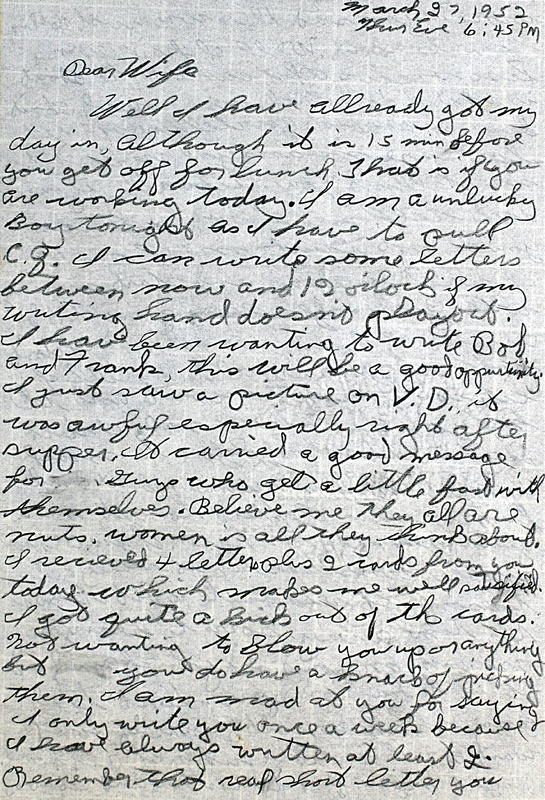 March 27, 1952
Thur Eve 6:45 PM
Dear Wife
Well I have allready got my
day in, although it is 15 min before
you get off for lunch. That is if you
are working today. I am a unlucky
Boy tonight as I have to pull
C.Q. I can write some letters
between now and 12 oclock if my
writing hand doesn't playout.
I have been wanting to write Bob,
and Frank, this will be a good opportunity.
I just saw a picture on V.D., it
was awful especially right after
supper. It carried a good message
for Guys who get a little fast with
themselves. Believe me they all are
nuts, women is all they think about.
I recieved 4 letters plus 2 cards from you
today which makes me well satisfied.
I got quite a kick out of th cards.
Not wanting to blow you up or anything
but you do have a knack of picking
them. I am mad at you for saying
I only write you once a week because
I have always written at least 2.
Remember that real short letter you